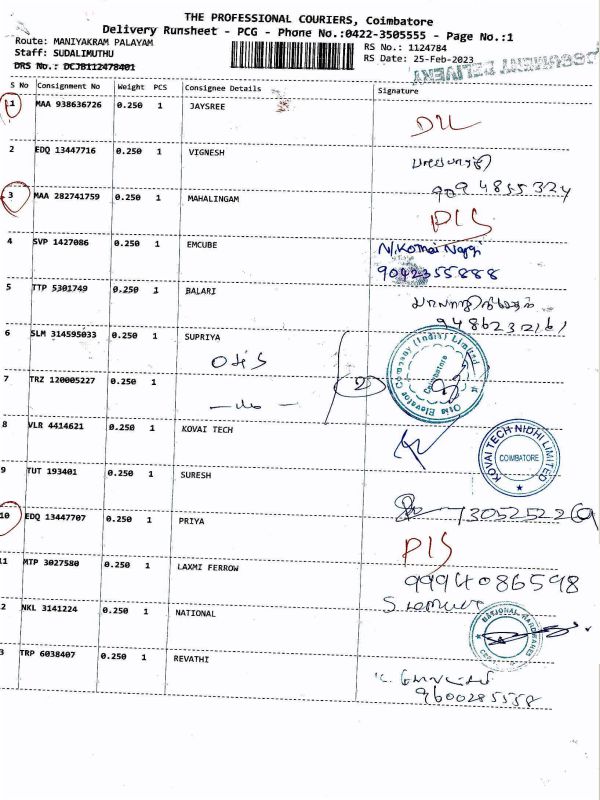 THE PROFESSIONAL COURIERS, Coimbatore
Delivery Runsheet - PCG - Phone No.:0422-3505555 - Page No.:1
Route: MANIYAKRAM PALAYAM
RS No.: 1124784
Staff: SUDALIMUTHU
RS Date: 25-Feb-2023
DRS No.: DCJB112478401
S No Consignment No Weight PCS Consignee Details Signature
1 MAA 938636726 0.250 1 JAYSREE
DLL
2 EDQ 13447716 0.250 1 VIGNESH
9094855324
3 MAA 282741759 0.250 1 MAHALINGAM
PIS
4 SVP 1427086 0.250 1 EMCUBE
9042355888
5 TTP 5301749 0.250 1 BALARI
9486232161
6 SLM 314595033 0.250 1 SUPRIYA
Otis Elevator Company (India) Limited
Coimbatore
7 TRZ 120005227 0.250 1
2
8 VLR 4414621 0.250 1 KOVAI TECH
KOVAI TECH NIDHI LIMITED
COIMBATORE
9 TUT 193401 0.250 1 SURESH
7305252269
10 EDQ 13447707 0.250 1 PRIYA
PIS
9994086598
11 MTP 3027580 0.250 1 LAXMI FERROW
2 NKL 3141224 0.250 1 NATIONAL
NATIONAL HARDWARES
3 TRP 6038407 0.250 1 REVATHI
9600285558